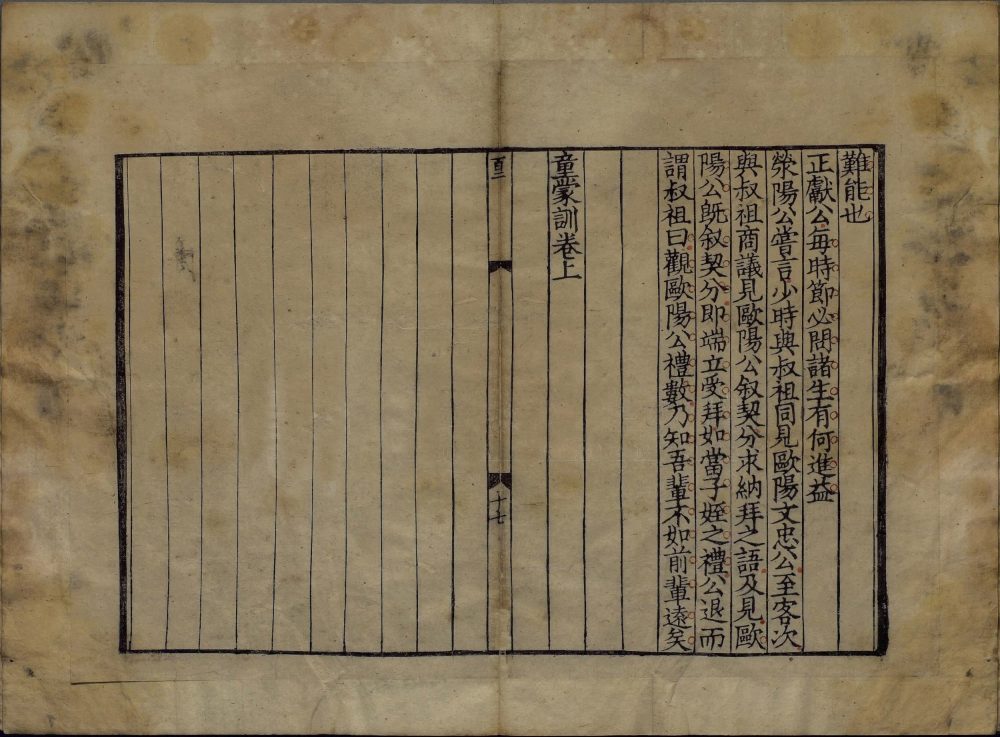 難能也
正獻公毎時節必問諸生有何進益
滎陽公嘗言少時與叔祖同見歐陽文忠公至客次
與叔祖商議見歐陽公叙契分求納拜之語及見歐
陽公既叙契分即端立受拜如當子姪之禮公退而
謂叔祖曰觀歐陽公禮數乃知吾輩不如前輩遠矣
童蒙訓卷上
十七